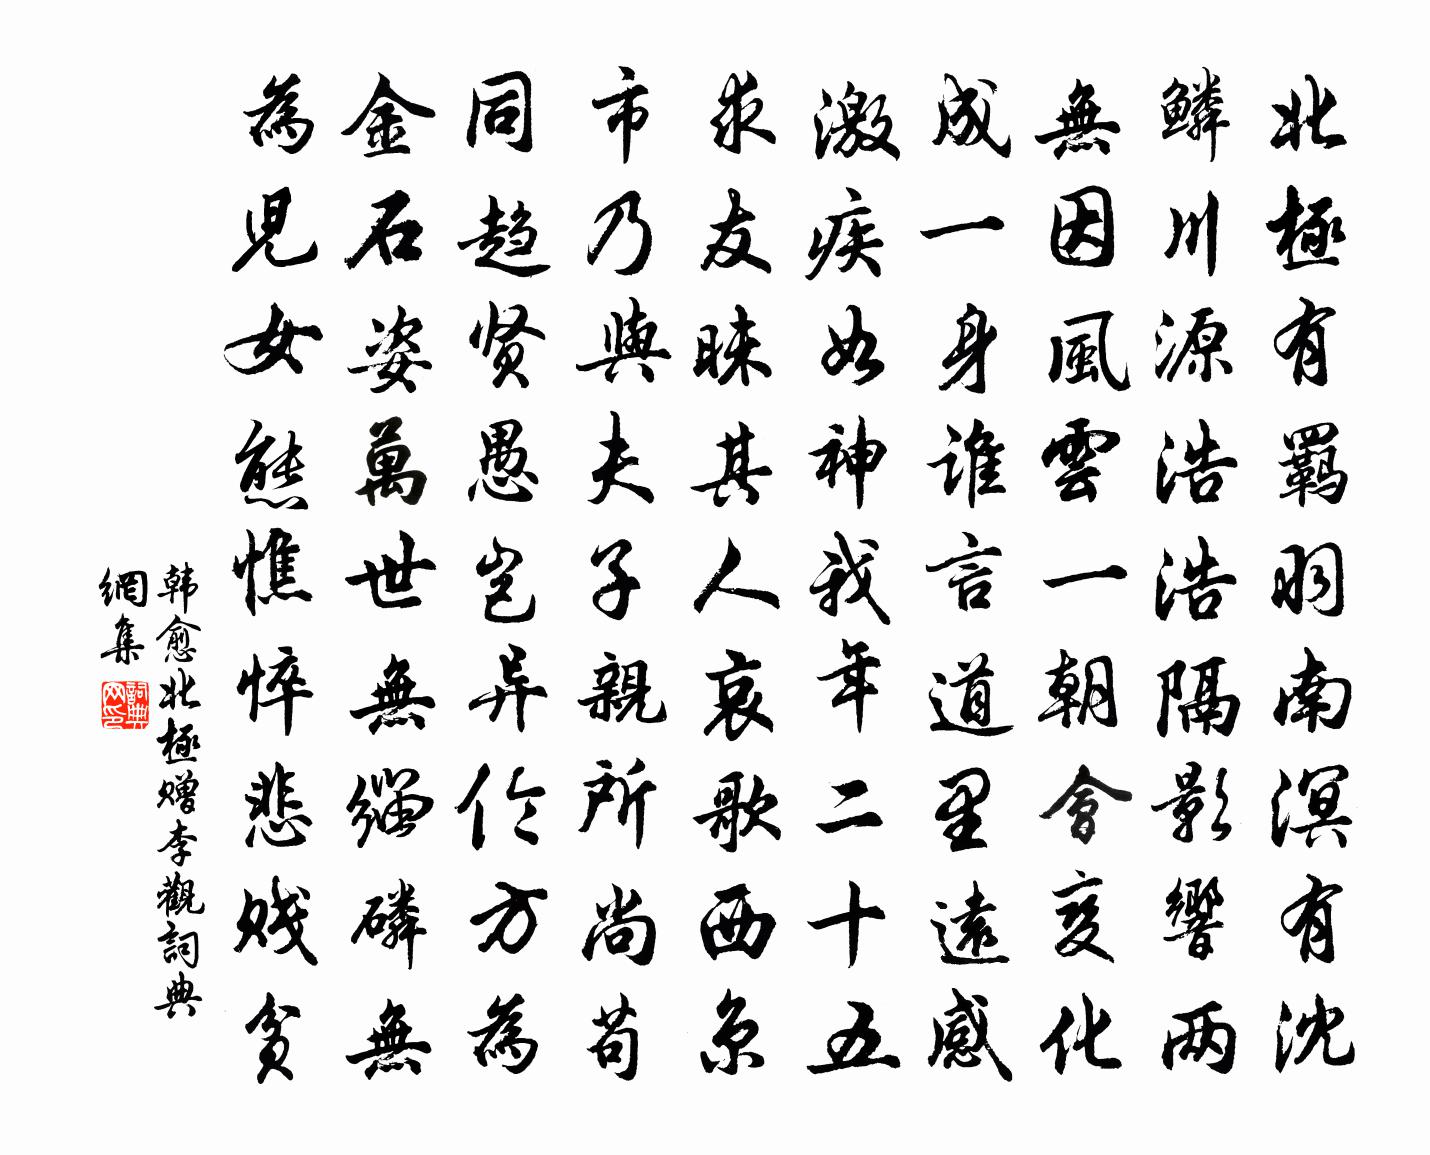 北極有羈羽南溟有沈
鱗川源浩浩隔影響两
無因風雲一朝會变化
成一身誰言道里遠感
激疾如神我年二十五
求友昧其人哀歌西京
市乃與夫子親所尚苟
同趋贤愚豈异倫方為
金石姿萬世無緇磷無
為兒女態憔悴悲贱贫
韩愈北極赠李觀詞典
網集
詞典
网印